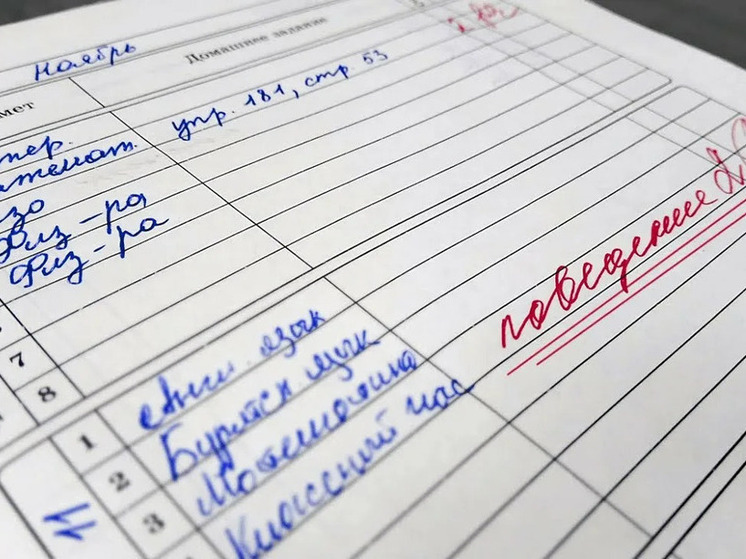 Ноябрь
Домашнее задание
мет
тер.
тематат. упр. 181, стр. 53
изо
Физ-ра
Физ-ра
7
8
поведение 2
1 Англ. язык
2 Бурятск. язык
3 Математика
Классный час
11